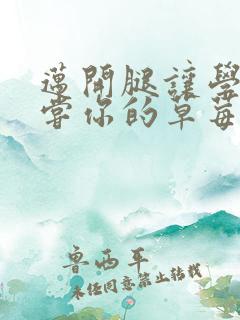 邁開腿讓學
嘗你的草莓
鲁西平
未经同意禁止转载